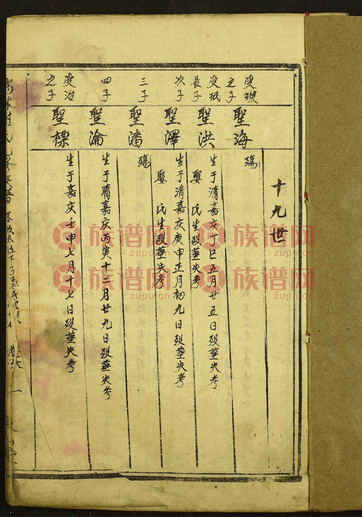 十九世
受瑕之子
聖海
殤
受珷長子
聖洪
生于清嘉庆丁巳五月廿五日殁塟失考
娶 氏生殁塟失考
次子
聖澤
生于清嘉庆庚申正月初九日殁塟失考
娶 氏生殁塟失考
三子
聖潘
殤
四子
聖淪
生于清嘉庆丙寅十二月廿九日殁塟失考
受治之子
聖標
生于嘉庆壬申七月十七日殁塟失考
族谱网
zupu.cn